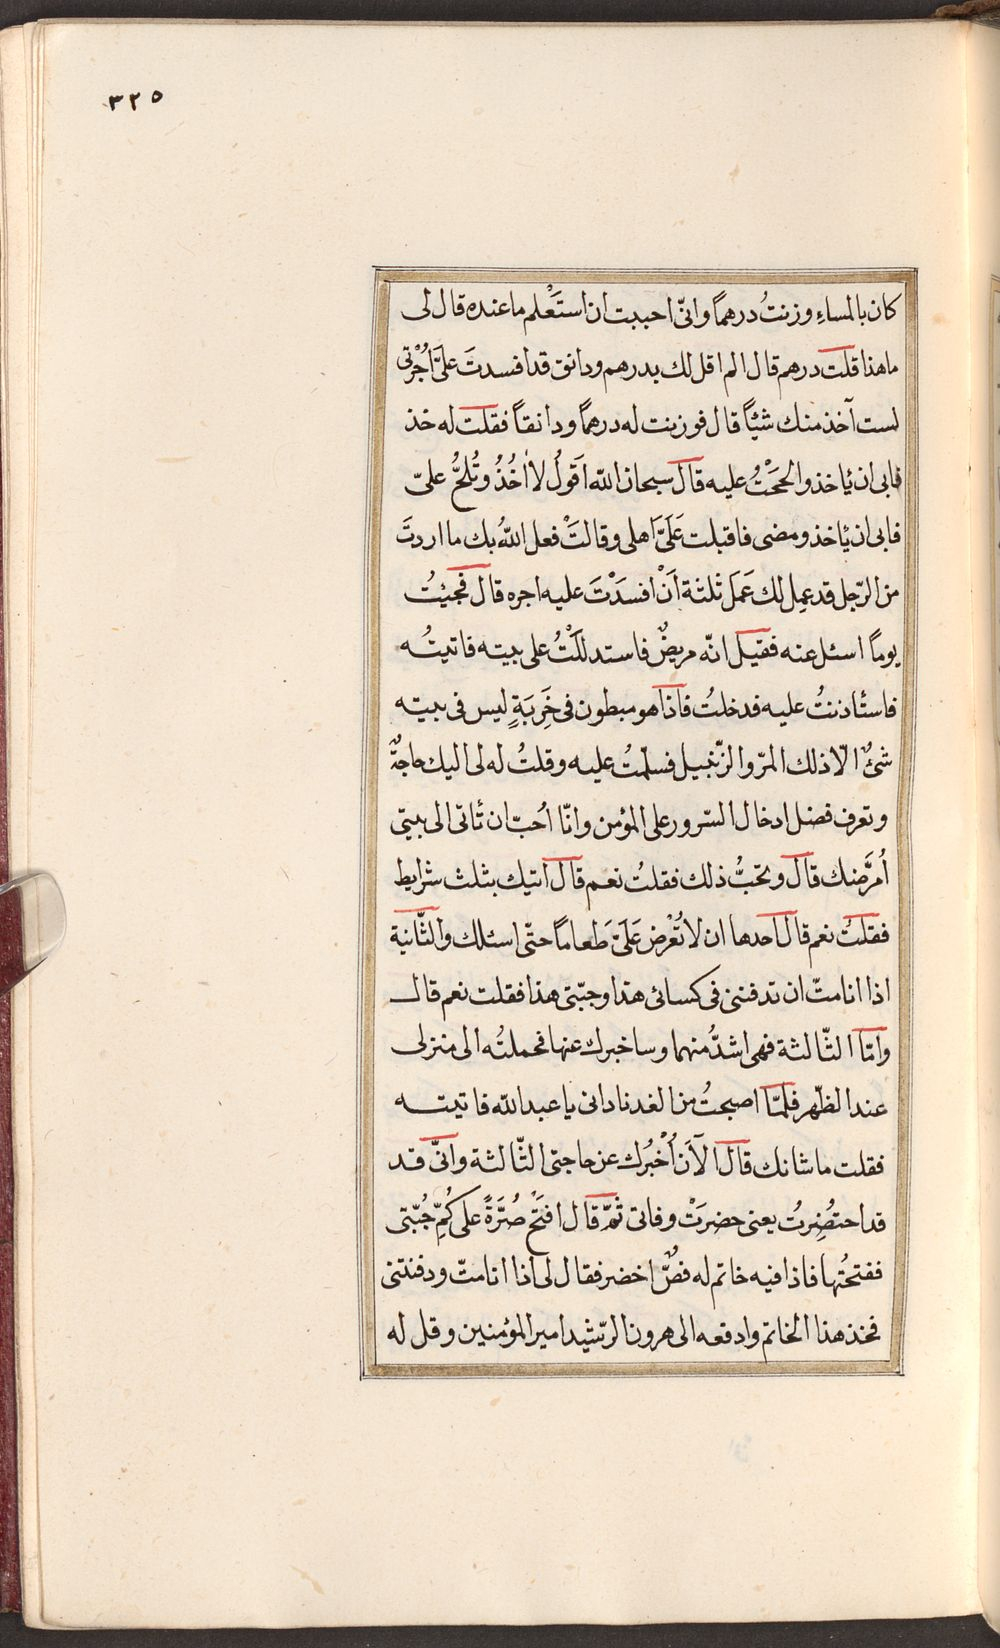 ٣٢٥
كان بالمساءِ وزنتُ درهمًا وانّى احببت ان استَعْلم ما عنده قال لى
ما هذا قلت درهم قال الم اقل لك بدرهم ودانق قد افسدتَ علىَّ اُجْرتى
لست آخذ منك شيئًا قال فوزنت له درهمًا ودانقًا فقلت له خذ
فابى ان ئاخذ والححَتُْ عليه قال سبحان اللّه اَقولُ لا اٰخُذُ وتُلحُّ علىّ
فابى ان ئاخذ ومضى فاقبلت عَلَىَّ اَهلى وقالتْ فعل اللّٰهُ بك ما اردتَ
من الرّجل قد عمِل لك عَمَل ثلثة اَنْ افسَدْتَ عليه اجره قال فجئِتُ
يومًا اسئل عنه فقيل انّه مريضٌ فاستدللَتُْ على بيته فاتيتُه
فاستٔاذنتُ عليه فدخلتُ فاذا هو مبطون فى خَرِبَةٍ ليس فى بيته
شئٌ الّا ذلك المرّ والزّنبيل فسلّمتُ عليه وقلتُ له لى اليك حاجةٌ
وتعرف فضل ادخال السّرور على المؤمن وانّا اُحبّ ان تٔاتى الى بيتى
اُمرَّضك قال وتحبُّ ذلك فقلتُ نعم قال اتيك بثلث شرايط
فقلتُ نعم قال احدها ان لا تُعْرض عَلَىّ طَعامًا حتّى اسئلك والثّانية
اذا انا متّ ان تدفننى فى كسائى هذا وجبّتى هذا فقلت نعم قال
وامّا الثّالثة فهى اشدُّ منهما وساخبرك عنها فحملتُه الى منزلى
عند الظّهر فلمّا اصبحتُ من الغد نادانى يا عبد اللّه فاتيته
فقلت ما شانك قال الآَن اُخْبرُك عن حاجتى الثّالثة وانّى قد
قد احتُضِرتُ يعنى حضرَتْ وفاتى ثمَّ قال افتَحْ صُرَّةً على كُمّ جُبّتى
ففتحتُها فاذا فيه خاتم له فصٌّ اخضر فقال لى اذا انا متّ ودفنتنى
فخذ هذا الخاتم وادفعه الى هرون الرّشيد امير المؤمنين وقل له